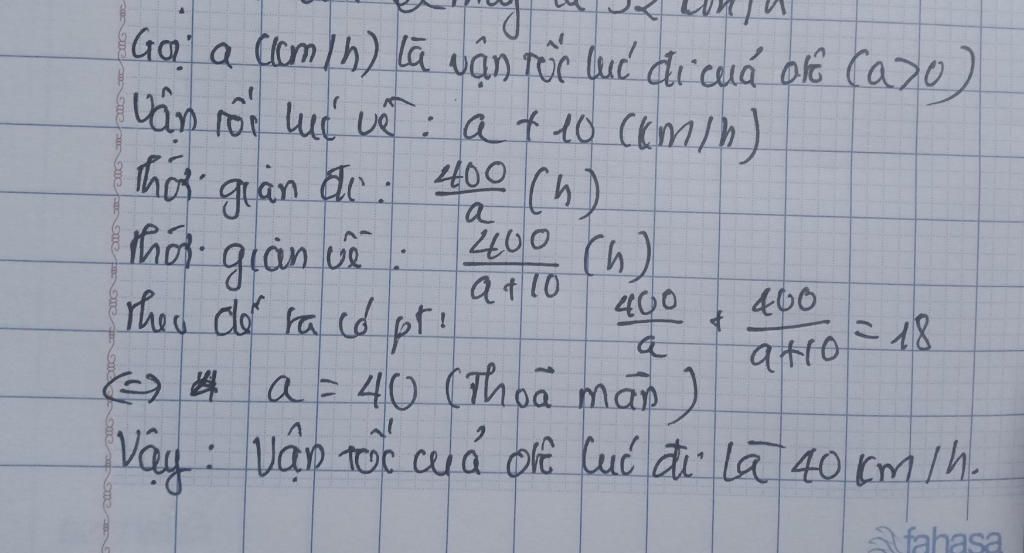 Gọi a (km/h) là vận tốc lúc đi của ôtô (a>0)
Vận tốc lúc về : a + 10 (km/h)
Thời gian đi : 400/a (h)
Thời gian về : 400/(a+10) (h)
Theo đề ra có pt: 400/a + 400/(a+10) = 18
<=> a = 40 (Thoã mãn)
Vậy : Vận tốc của ôtô lúc đi là 40 km/h.
fahasa